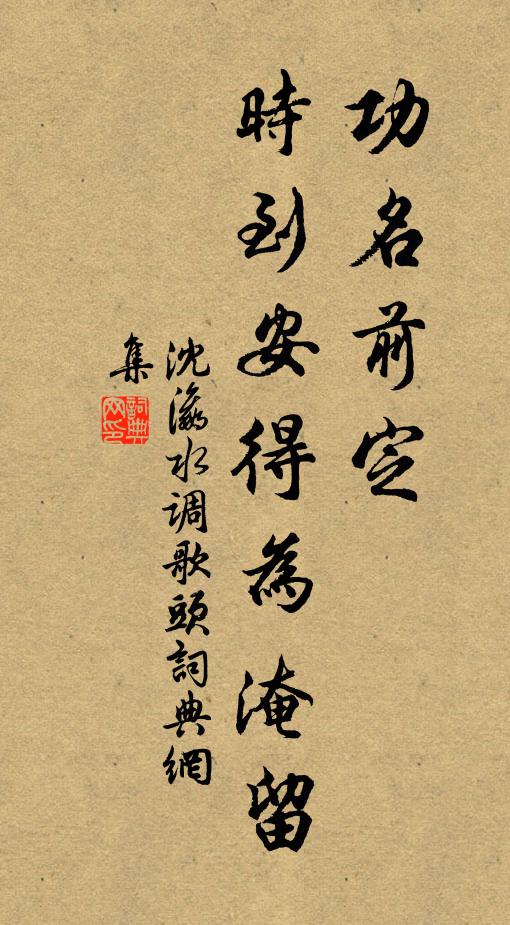 功名前定
時到安得為淹留
沈瀛水调歌頭詞典網
集
詞典网印